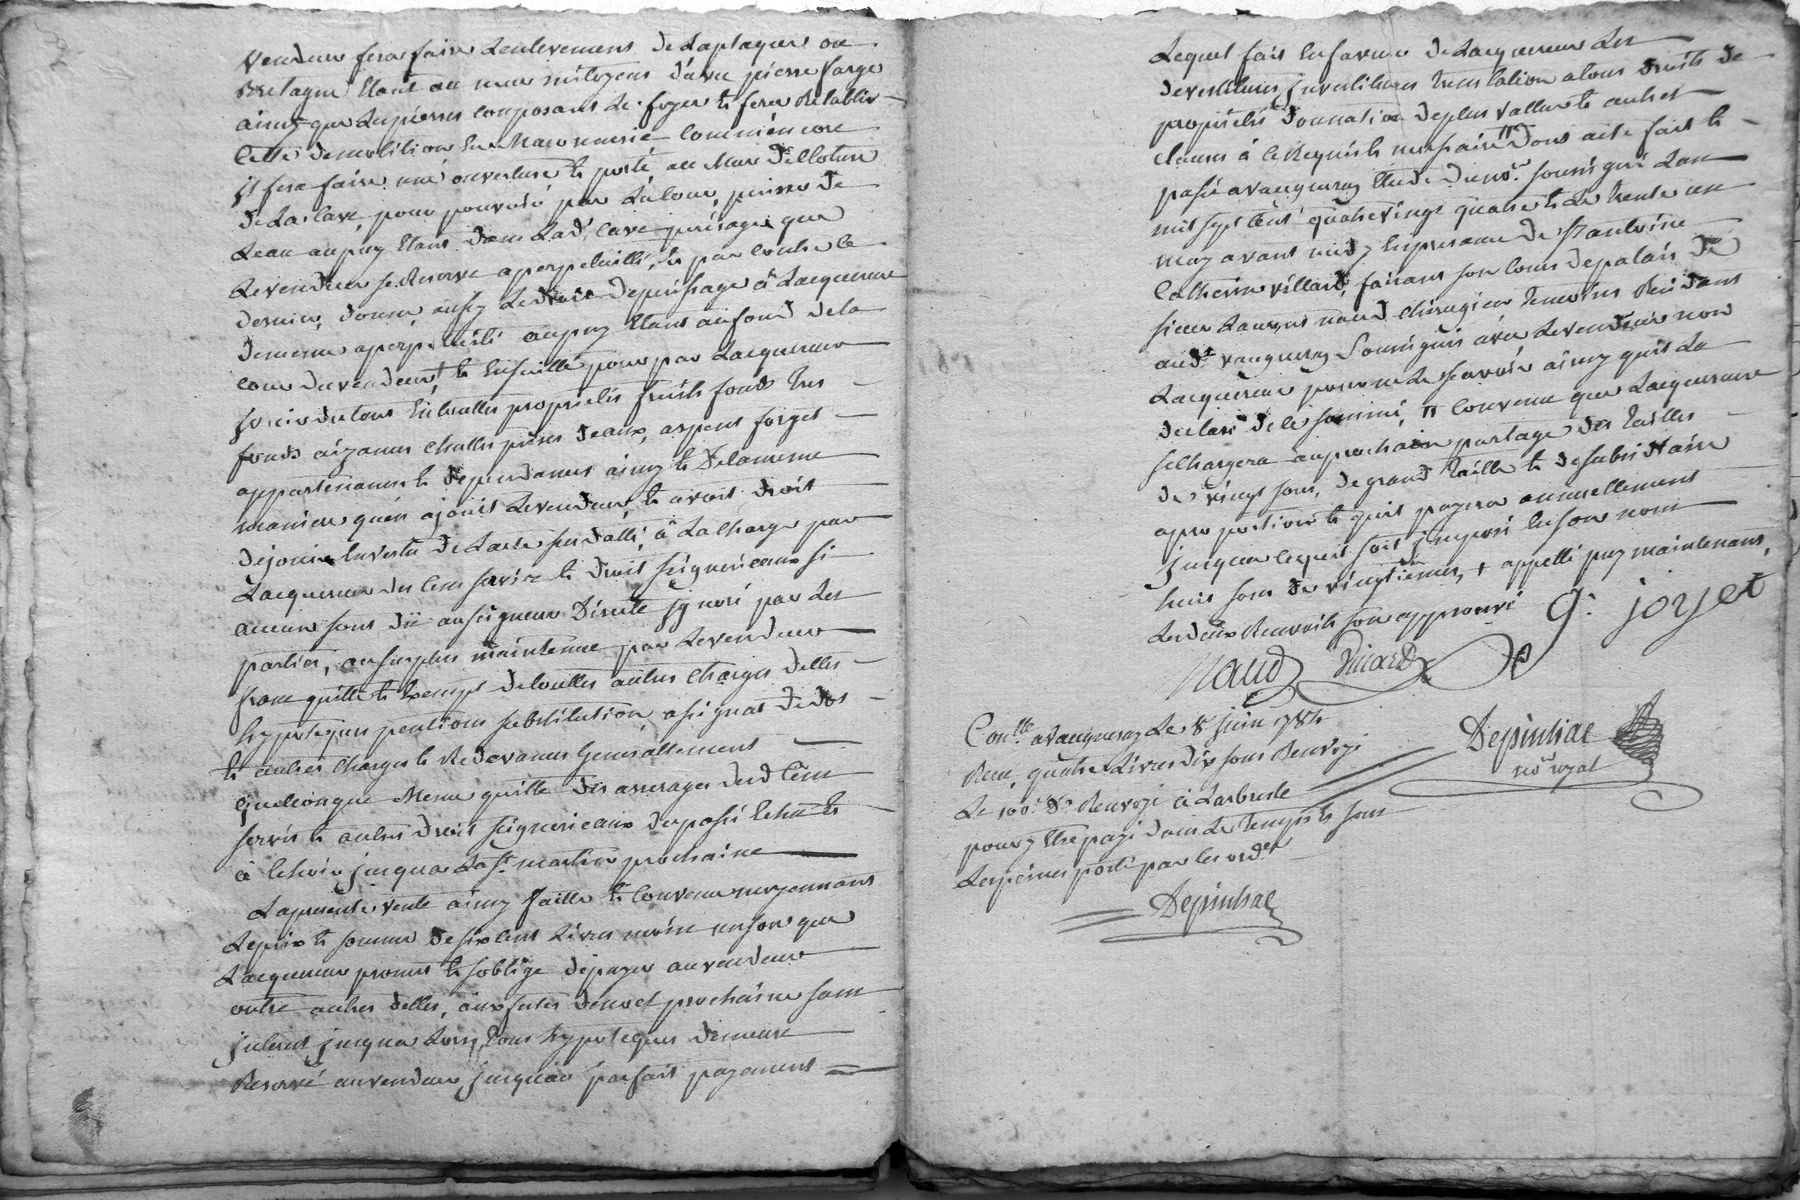 vendeur fera faire Lenlevement de Laplaque ou
Bretagne Etant au mur mitoyens d'avec pierre farge
ainsy que Lespierres composant Le foyer & fera Retablir
Cette demolition En Maconnerie Comme encore
il fera faire une ouverture & porte au Mur de Cloture
de La Cave, pour pouvoir par La Cour, puiser de
Leau au puy Etant dans Lad. Cave puisage que
Le vendeur se Reserve a perpetuitté, & par contre ce
dernier, donne aussy Le droit de puisage à Lacquereur
de meme a perpetuitté au puy Etant au fond de la
cour du vendeur + & Ensuitte pour par Lacquereur
jouir du tout En touttes proprietés fruits fonds tres
fonds aizances Chuttes prises deaux, aspens forgets
appartenances & dependances ainsy & De la meme
maniere quen a joüit Le vendeur, & avoit droit
de jouir Envertu de Lacte susdatté, à La Charge par
Lacquereur des Cens servis & droit seigneuriaux si
aucuns sont dü au seigneur Directe ignoré par Les
parties, au surplus maintenue par Le vendeur
franc quitte & Exempt de touttes autres Charges dettes
hyppoteques pentions substitution assignat de dot
& autres Charges & Redevances Generallement
quelconque Meme quitte des arrerages dud. Cens
servis & autres droit seigneuriaux du passé Echu &
à Echoir jusqua La St martin prochaine
La presente vente ainsy faitte & Convenue moyennant
Le prix & somme de six Cent Livres
Lacquereur promet & soblige de payer au vendeur
outre autres dettes, aux fetes de noel prochaine sans
interest jusqua Lors, tous hyppoteques demeure
Reservé au vendeur, jusquau parfait payement
Lequel fait En faveur de Lacquereur Les
devestitures investitures translation a tous droits de
proprietés donnation de plus vallue & autres
Clauses à ce Requis & necessaire Dont acte fait &
passé a vaugneray Etude du no.re soussigné Lan
mil sept Cent quatre vingt quatre & Le trente un
may avant midy En presence de Sr antoine
Catherin villard, faisant son Cours de palais &
sieur Laurent naud Chirugien temoins Residant
aud.t vaugneray Soussignés avec Le vendeur non
Lacquereur pour ne Le savoir ainsy quil La
declaré de ce sommé, # Convenu que Lacquereur
se Chargera au prochain partage des tailles
de vingt sous, de grand taille & de subsidiaire
a proportion & quil payera annuellement
jusqua cequil soit imposé En son nom
huit sous de vingtiemes, + appellé puy maintenant,
Les deux Renvoits sont approuvé G. joyet
Naud Villard
Con.lle a vaugneray Le 8 juin 1784
Recu quatre Livres dix sous Renvoyé
Le 100.e d.r Renvoyé à Larbresle
pour y Etre payé dans Le temps & sous
Les peines porté par les ord.es
Depinhac
Depinhac
no.re royal